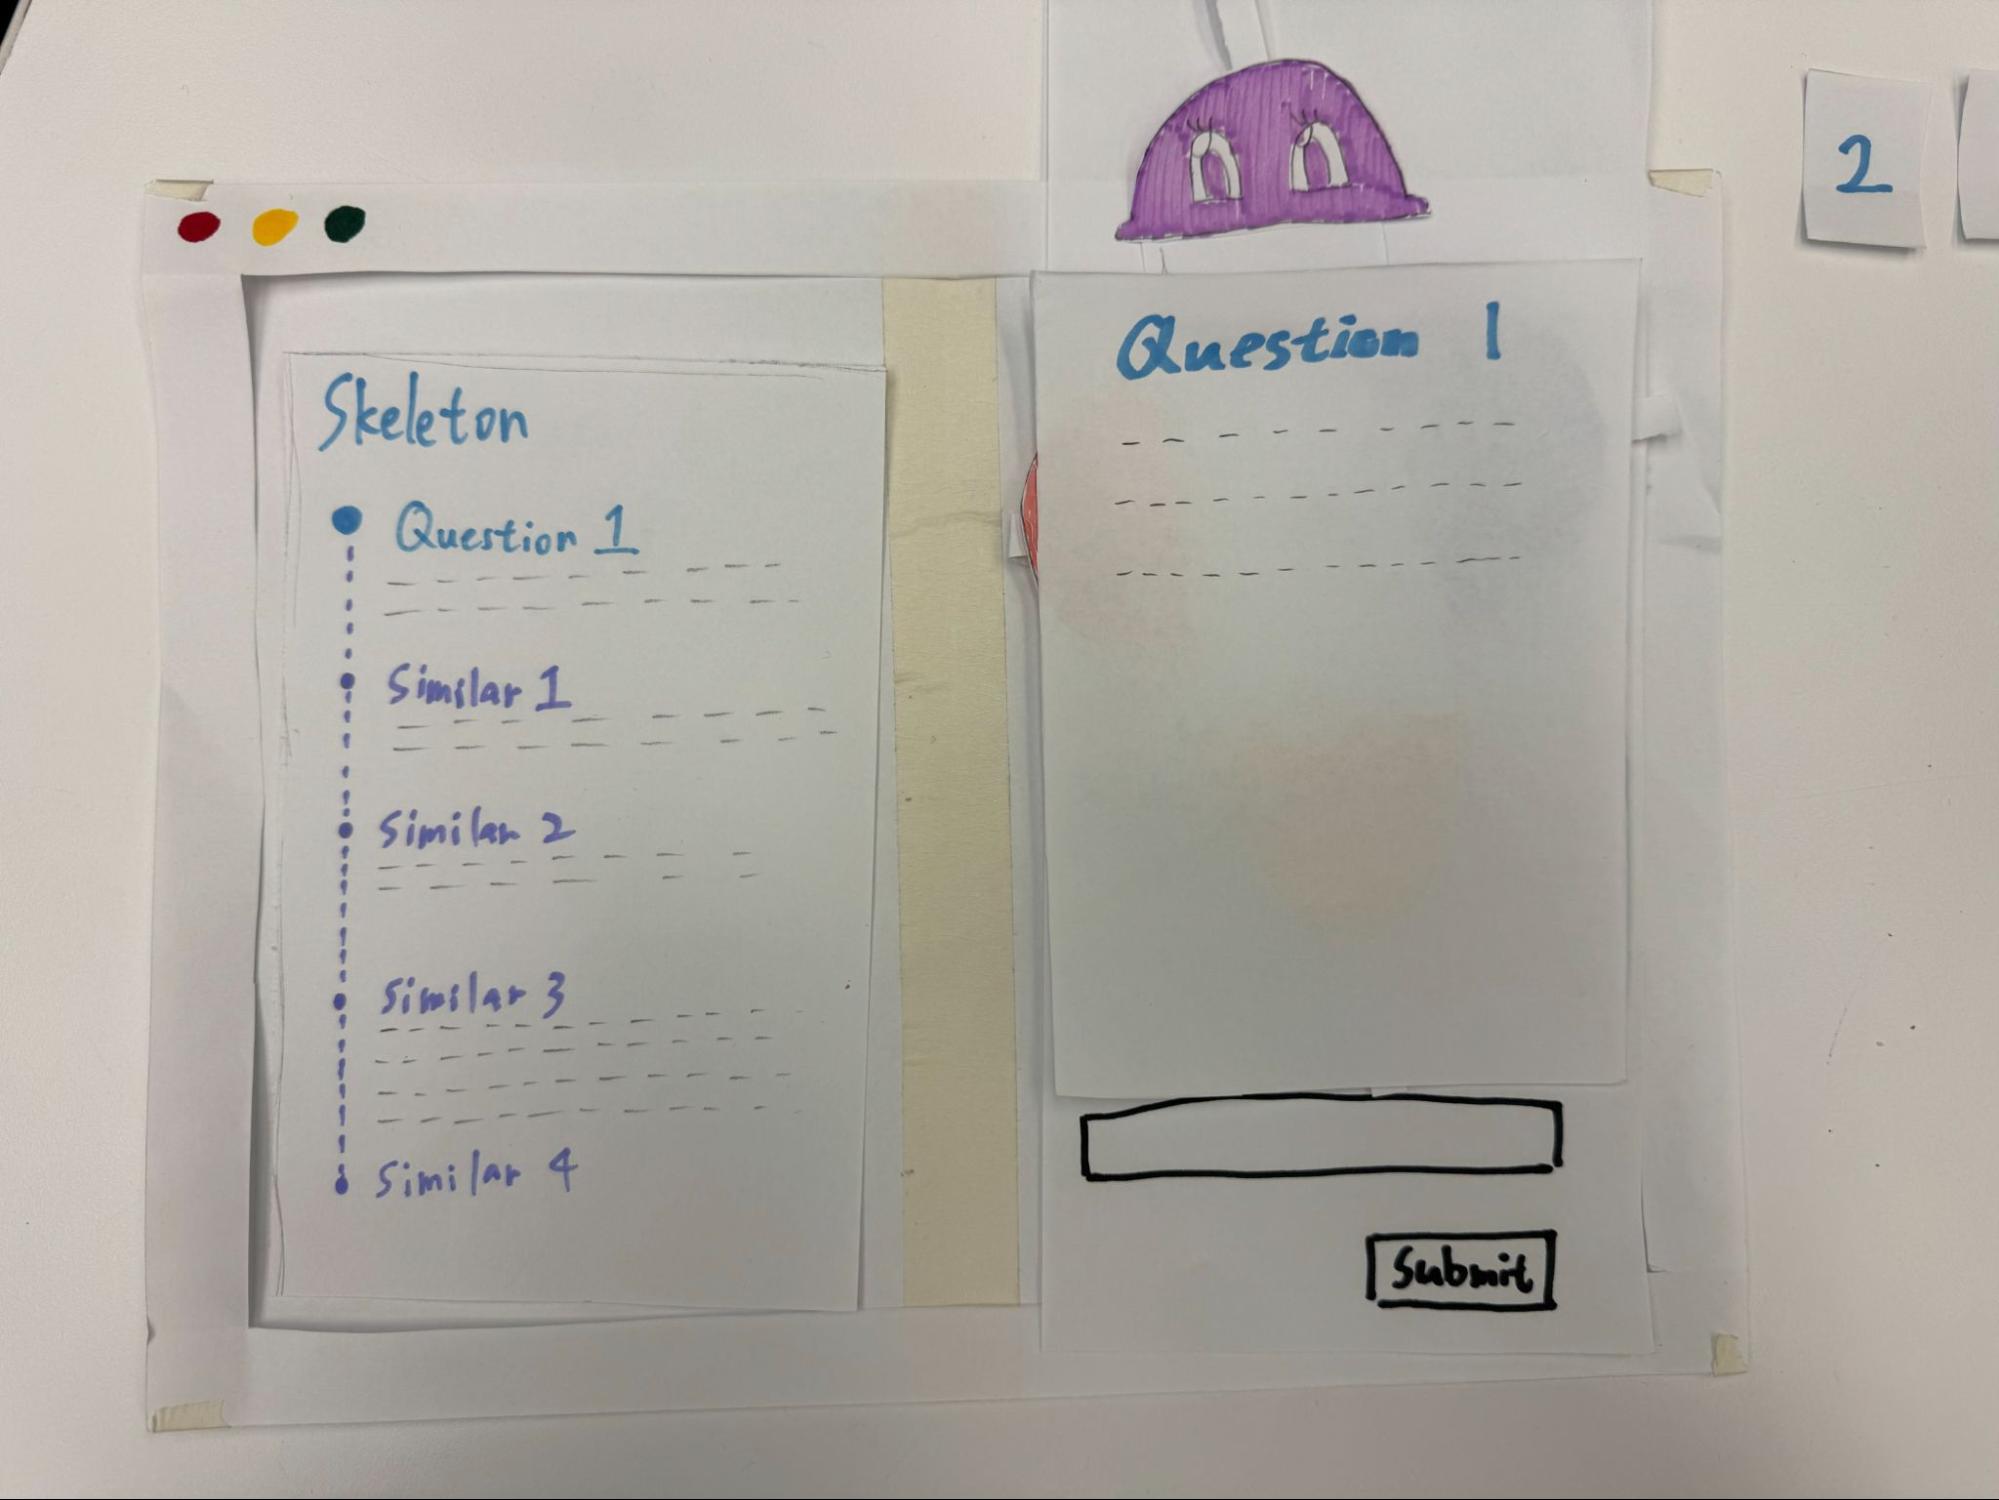 Skeleton
Question 1
Similar 1
Similar 2
Similar 3
Similar 4
Question 1
Submit
2